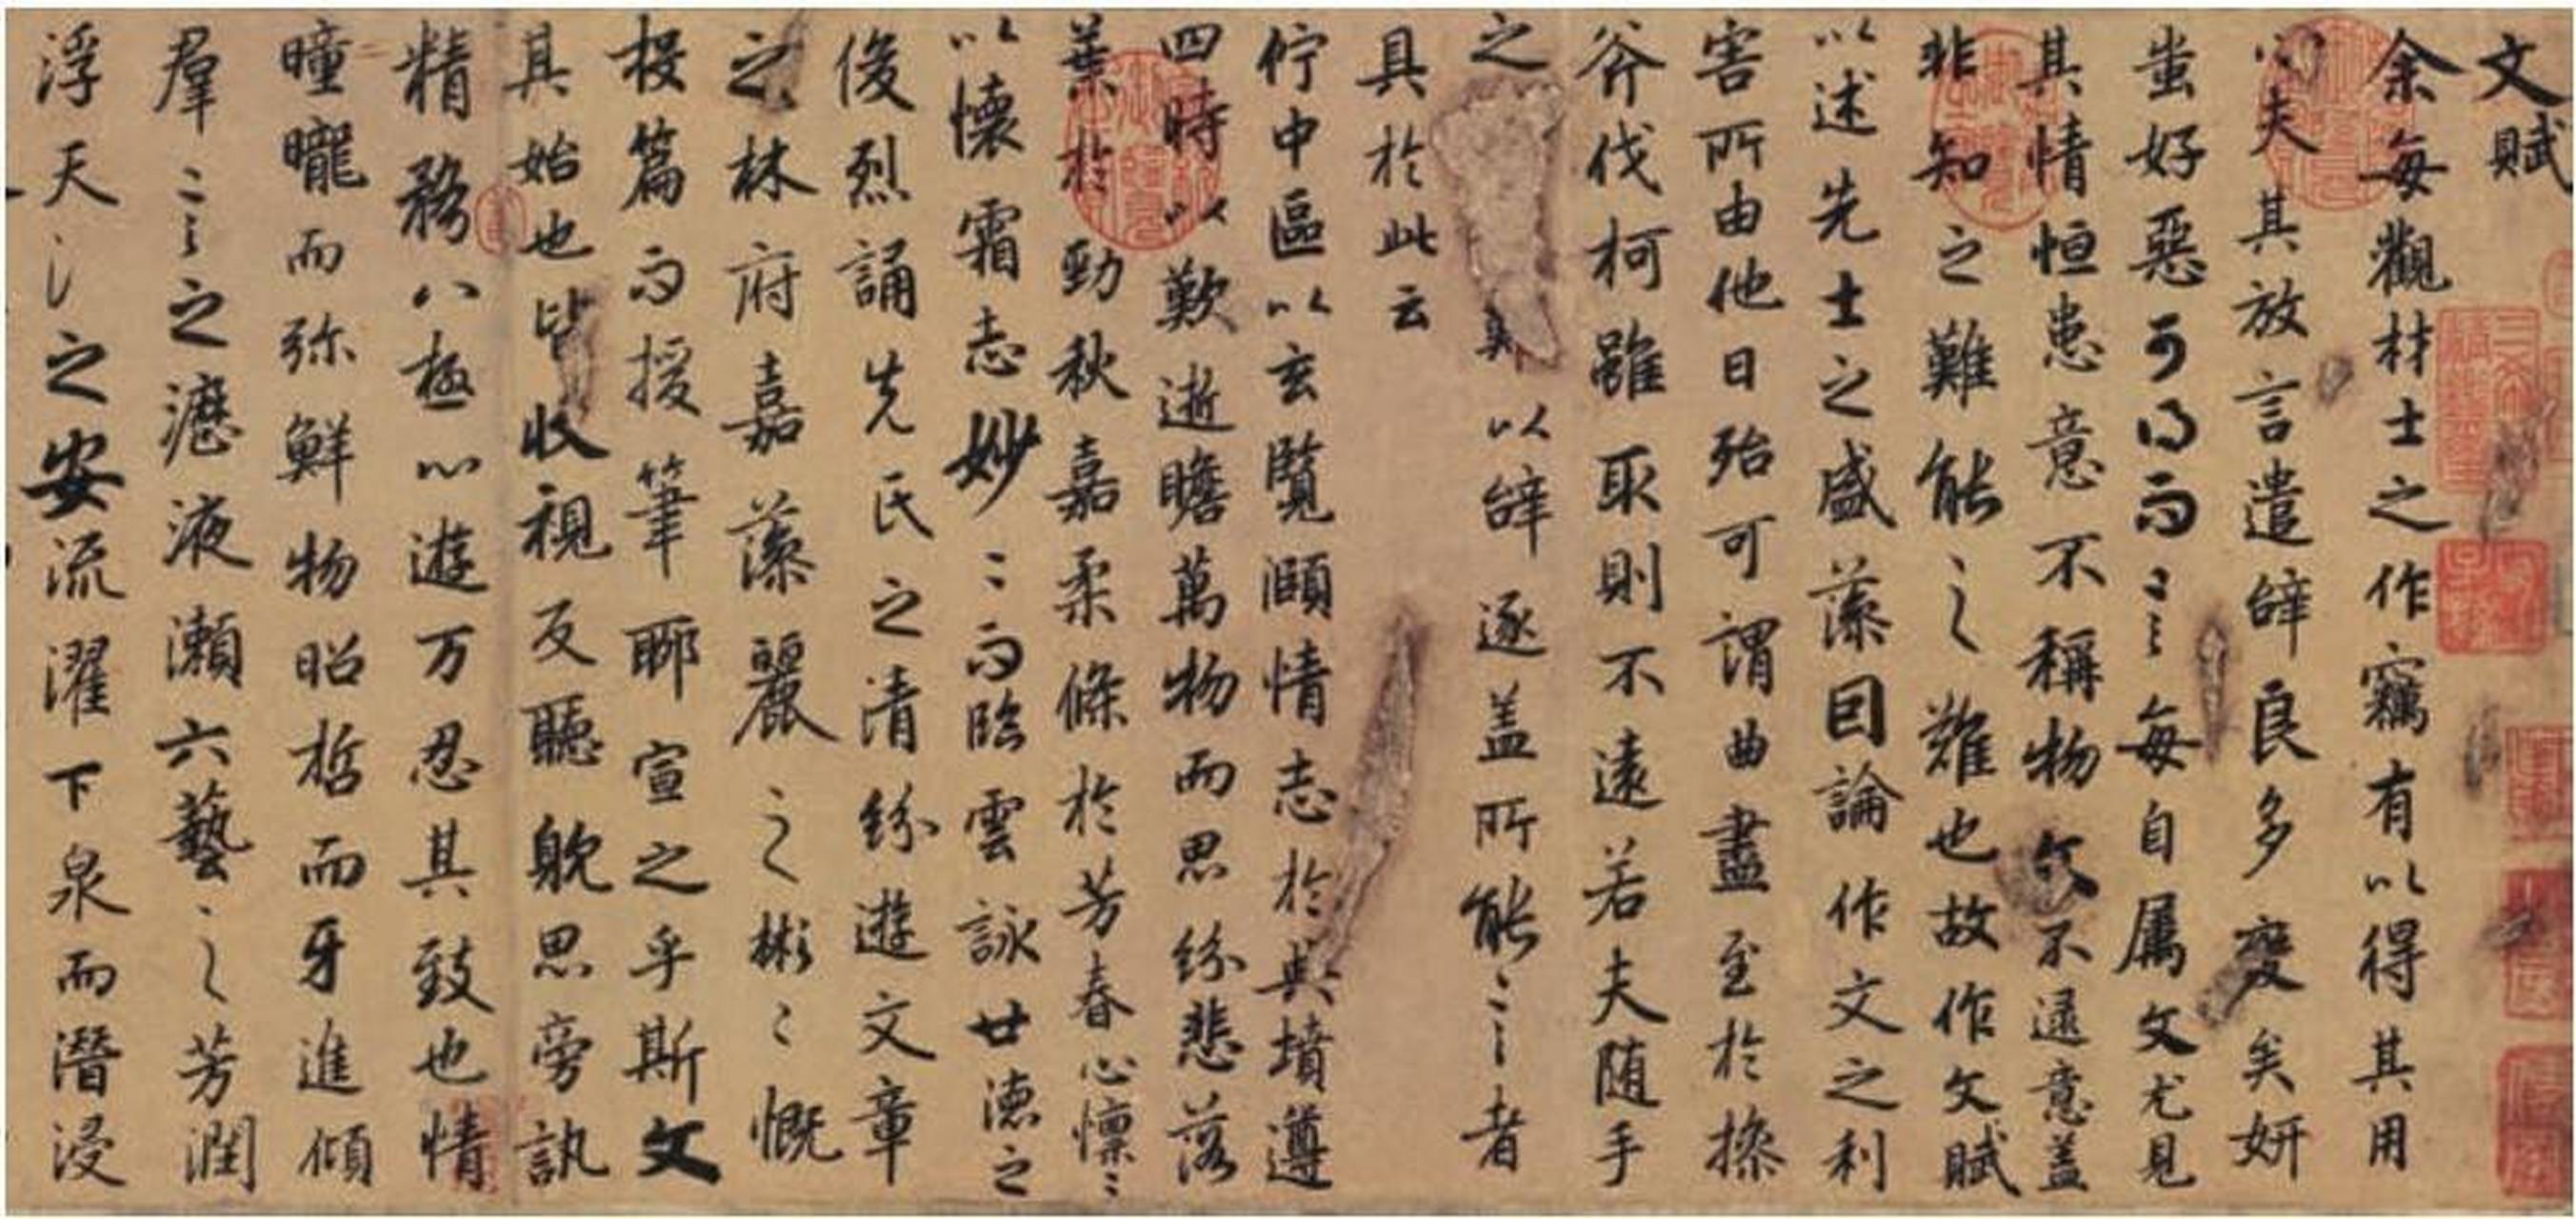 文賦
余每觀材士之作竊有以得其用
心夫其放言遣辞良多變矣妍
蚩好惡可得而〻言〻每自属文尤見
其情恒患意不稱物文不逮意蓋
非知之難能〻之難也故作文賦
以述先士之盛藻因論作文之利
害所由他日殆可謂曲盡至於操
斧伐柯雖取則不遠若夫随手
之 以辞逐盖所能〻言〻者
具於此云
佇中區以玄覽頤情志於典墳遵
四時以歎逝瞻萬物而思紛悲落
葉於勁秋嘉柔條於芳春心懍〻
以懷霜志妙〻而臨雲詠世德之
俊烈誦先民之清紛遊文章
之林府嘉藻麗之彬〻慨
投篇而援筆聊宣之乎斯文
其始也皆收視反聽躭思旁訊
精務八極心遊万忍其致也情
曈曨而弥鮮物昭晢而牙進傾
羣〻言之瀝液漱六藝〻之芳潤
浮天〻之安流濯下泉而潛浸